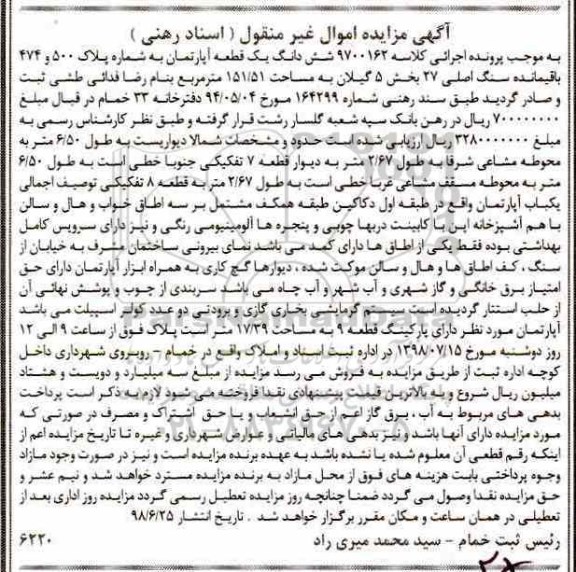 آگهی مزایده اموال غیر منقول ( اسناد رهنی )
به موجب پرونده اجرائی کلاسه ۹۷۰۰۱۶۲ شش دانگ یک قطعه آپارتمان به شماره پلاک ۵۰۰ و ۴۷۴
باقیمانده سنگ اصلی ۲۷ بخش ۵ گیلان به مساحت ۱۵۱/۵۱ مترمربع بنام رضا فدائی طشی ثبت
و صادر گردید طبق سند رهنی شماره ۱۶۴۲۹۹ مورخ ۹۴/۰۵/۰۴ دفترخانه ۳۳ خمام در قبال مبلغ
۷۰۰۰۰۰۰۰۰ ریال در رهن بانک سپه شعبه گلسار رشت قرار گرفته و طبق نظر کارشناس رسمی به
مبلغ ۳۲۸۰۰۰۰۰۰۰ ریال ارزیابی شده است حدود و مشخصات شمالا دیواریست به طول ۶/۵۰ متر به
محوطه مشاعی شرقا به طول ۲/۶۷ متر به دیوار قطعه ۷ تفکیکی جنوبا خطی است به طول ۶/۵۰
متر به محوطه مسقف مشاعی غربا خطی است به طول ۲/۶۷ متر به قطعه ۸ تفکیکی توصیف اجمالی
یکباب آپارتمان واقع در طبقه اول دکاکین طبقه همکف مشتمل بر سه اطاق خواب و هال و سالن
با هم آشپزخانه اپن با کابینت دربها چوبی و پنجره ها آلومینیومی رنگی و نیز دارای سرویس کامل
بهداشتی بوده فقط یکی از اطاق ها دارای کمد می باشد نمای بیرونی ساختمان مشرف به خیابان از
سنگ ، کف اطاق ها و هال و سالن موکت شده ، دیوارها گچ کاری به همراه ابزار آپارتمان دارای حق
امتیاز برق خانگی و گاز شهری و آب شهر و آب چاه می باشد سربندی از چوب و پوشش نهائی آن
از حلب استتار گردیده است سیستم گرمایشی بخاری گازی و برودتی دو عدد کولر اسپیلت می باشد
آپارتمان مورد نظر دارای پارکینگ قطعه ۹ به مساحت ۱۷/۳۹ متر است پلاک فوق از ساعت ۹ الی ۱۲
روز دوشنبه مورخ ۱۳۹۸/۰۷/۱۵ در اداره ثبت اسناد و املاک واقع در خمام – روبروی شهرداری داخل
کوچه اداره ثبت از طریق مزایده به فروش می رسد مزایده از مبلغ سه میلیارد و دویست و هشتاد
میلیون ریال شروع و به بالاترین قیمت پیشنهادی نقدا فروخته می شود لازم به ذکر است پرداخت
بدهی های مربوط به آب ، برق گاز اعم از حق انشعاب و یا حق اشتراک و مصرف در صورتی که
مورد مزایده دارای آنها باشد و نیز بدهی های مالیاتی و عوارض شهرداری و غیره تا تاریخ مزایده اعم از
اینکه رقم قطعی آن معلوم شده یا نشده باشد به عهده برنده مزایده است و نیز در صورت وجود مازاد
وجوه پرداختی بابت هزینه های فوق از محل مازاد به برنده مزایده مسترد خواهد شد و نیم عشر و
حق مزایده نقدا وصول می گردد ضمنا چنانچه روز مزایده تعطیل رسمی گردد مزایده روز اداری بعد از
تعطیلی در همان ساعت و مکان مقرر برگزار خواهد شد . تاریخ انتشار ۹۸/۶/۲۵
رئیس ثبت خمام – سید محمد میری راد ۶۲۲۰